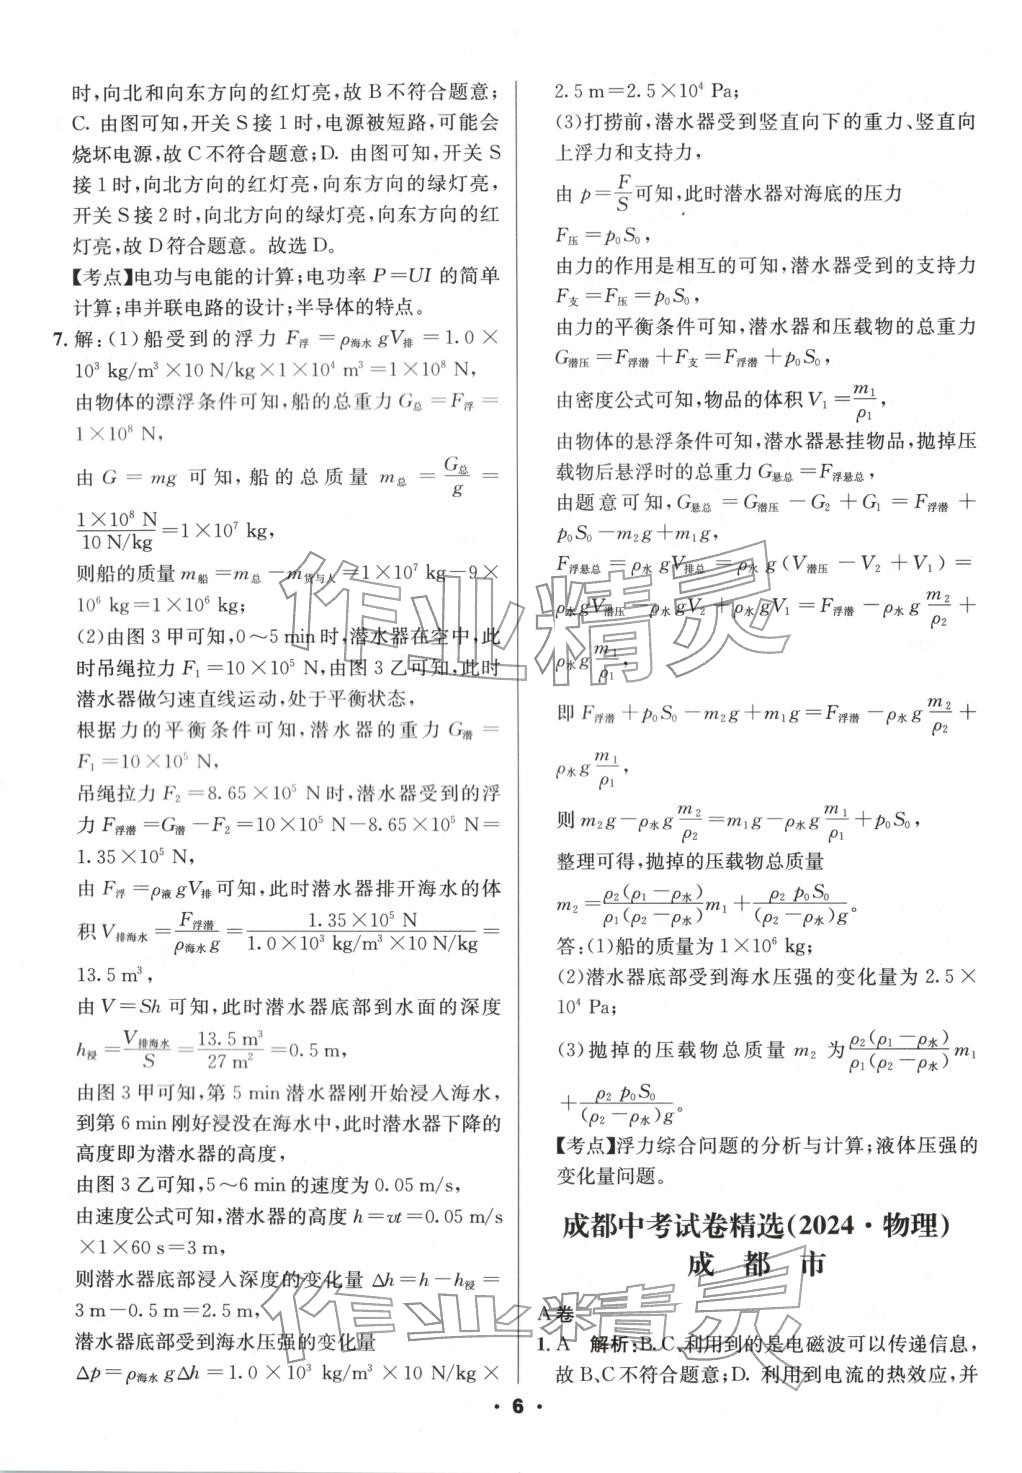 时,向北和向东方向的红灯亮,故 B不符合题意;
C. 由图可知,开关 S接 1时,电源被短路,可能会
烧坏电源,故 C不符合题意;D. 由图可知,开关 S
接 1时,向北方向的红灯亮,向东方向的绿灯亮,
开关 S接 2时,向北方向的绿灯亮,向东方向的红
灯亮,故 D符合题意。故选 D。
【考点】电功与电能的计算;电功率 P=UI 的简单
计算;串并联电路的设计;半导体的特点。
7. 解:(1)船受到的浮力 F浮=ρ海水 gV排=1.0×
10³ kg/m³×10 N/kg×1×10⁴ m³=1×10⁸ N,
由物体的漂浮条件可知,船的总重力 G总=F浮=
1×10⁸ N,
由 G=mg 可知,船的总质量 m总=G总/g=
1×10⁸ N/10 N/kg=1×10⁷ kg,
则船的质量 m船=m总-m货与人=1×10⁷ kg-9×
10⁶ kg=1×10⁶ kg;
(2)由图 3 甲可知,0~5 min时,潜水器在空中,此
时吊绳拉力 F₁=10×10⁵ N,由图 3 乙可知,此时
潜水器做匀速直线运动,处于平衡状态,
根据力的平衡条件可知,潜水器的重力 G潜=
F₁=10×10⁵ N,
吊绳拉力 F₂=8.65×10⁵ N时,潜水器受到的浮
力 F浮潜=G潜-F₂=10×10⁵ N-8.65×10⁵ N=
1.35×10⁵ N,
由 F浮=ρ液 gV排可知,此时潜水器排开海水的体
积 V排海水=F浮潜/ρ海水 g=1.35×10⁵ N/1.0×10³ kg/m³×10 N/kg=
13.5 m³,
由 V=Sh 可知,此时潜水器底部到水面的深度
h浸=V排海水/S=13.5 m³/27 m²=0.5 m,
由图 3 甲可知,第 5 min潜水器刚开始浸入海水,
到第 6 min刚好浸没在海水中,此时潜水器下降的
高度即为潜水器的高度,
由图 3 乙可知,5~6 min的速度为 0.05 m/s,
由速度公式可知,潜水器的高度 h=vt=0.05 m/s
×1×60 s=3 m,
则潜水器底部浸入深度的变化量 Δh=h-h浸=
3 m-0.5 m=2.5 m,
潜水器底部受到海水压强的变化量
Δp=ρ海水 gΔh=1.0×10³ kg/m³×10 N/kg×
2.5 m=2.5×10⁴ Pa;
(3)打捞前,潜水器受到竖直向下的重力、竖直向
上浮力和支持力,
由 p=F/S可知,此时潜水器对海底的压力
F压=p₀S₀,
由力的作用是相互的可知,潜水器受到的支持力
F支=F压=p₀S₀,
由力的平衡条件可知,潜水器和压载物的总重力
G潜压=F浮潜+F支=F浮潜+p₀S₀,
由密度公式可知,物品的体积 V₁=m₁/ρ₁,
由物体的悬浮条件可知,潜水器悬挂物品,抛掉压
载物后悬浮时的总重力 G悬总=F浮悬总,
由题意可知,G悬总=G潜压-G₂+G₁=F浮潜+
p₀S₀-m₂g+m₁g,
F浮悬总=ρ水 gV排总=ρ水 g(V潜压-V₂+V₁)=
ρ水 gV潜压-ρ水 gV₂+ρ水 gV₁=F浮潜-ρ水 g m₂/ρ₂+
ρ水 g m₁/ρ₁,
即 F浮潜+p₀S₀-m₂g+m₁g=F浮潜-ρ水 g m₂/ρ₂+
ρ水 g m₁/ρ₁,
则 m₂g-ρ水 g m₂/ρ₂=m₁g-ρ水 g m₁/ρ₁+p₀S₀,
整理可得,抛掉的压载物总质量
m₂=ρ₂(ρ₁-ρ水)/ρ₁(ρ₂-ρ水)m₁+ρ₂ p₀S₀/(ρ₂-ρ水)g。
答:(1)船的质量为 1×10⁶ kg;
(2)潜水器底部受到海水压强的变化量为 2.5×
10⁴ Pa;
(3)抛掉的压载物总质量 m₂ 为ρ₂(ρ₁-ρ水)/ρ₁(ρ₂-ρ水)m₁
+ρ₂ p₀S₀/(ρ₂-ρ水)g。
【考点】浮力综合问题的分析与计算;液体压强的
变化量问题。
成都中考试卷精选(2024·物理)
成 都 市
A卷
1. A 解析:B、C. 利用到的是电磁波可以传递信息,
故 B、C不符合题意;D. 利用到电流的热效应,并
· 6 ·
作业精灵
作业精灵